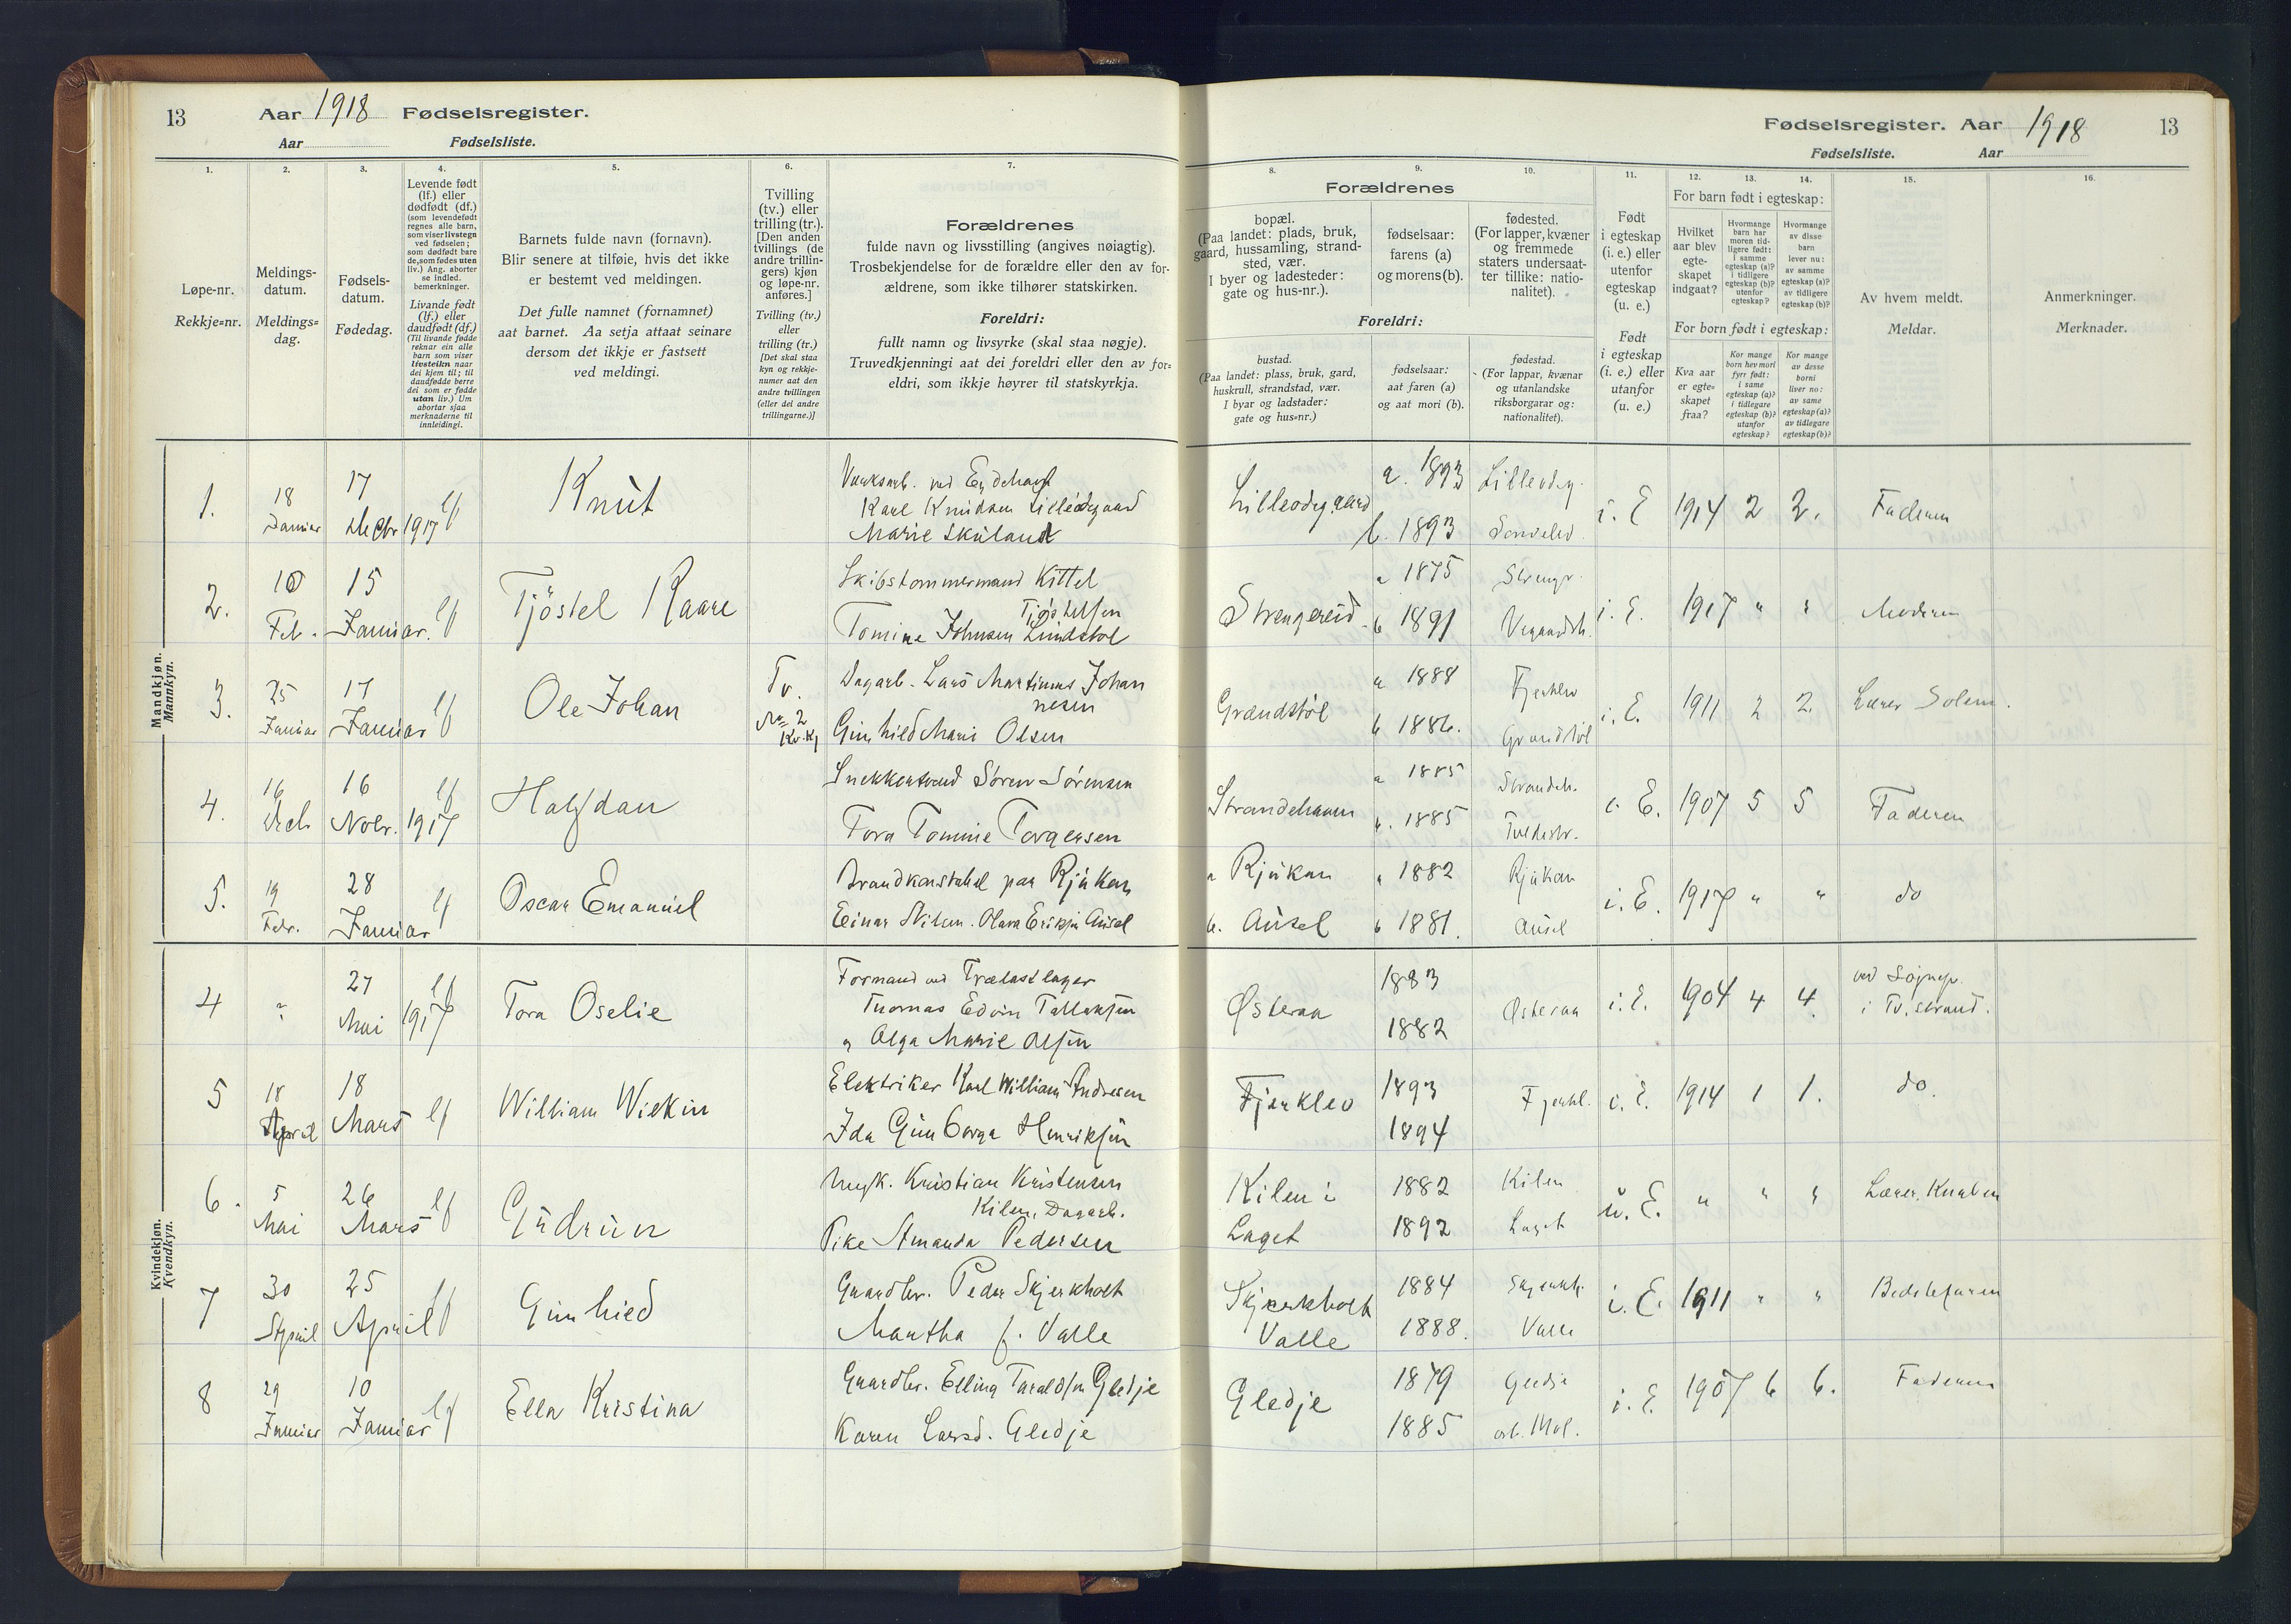 13
Aar 1918 Fødselsregister.
Aar Fødselsliste.
Fødselsregister. Aar 1918
13
Fødselsliste. Aar
1.
Løpe-nr.
Rekkje=nr.
2.
Meldings-
datum.
Meldings=
dag.
3.
Fødsels-
datum.
Fødedag.
4.
Levende født
(lf.) eller
dødfødt (df.)
(som levendefødt
regnes alle barn,
som viser livstegn
ved fødselen;
som dødfødt bare
de, som fødes uten
liv.) Ang. aborter
se indled.
bemerkninger.
Livande født
(lf.) eller
daudfødt (df.)
(Til livande fødde
reknar ein alle
barn som viser
livsteikn naar
dei kjem til; til
daudfødde berre
dei som er fødde
utan liv.) Um
abortar sjaa
merknaderne til
innleidingi.
5.
Barnets fulde navn (fornavn).
Blir senere at tilføie, hvis det ikke
er bestemt ved meldingen.
Det fulle namnet (fornamnet)
aat barnet. Aa setja attaat seinare
dersom det ikkje er fastsett
ved meldingi.
6.
Tvilling
(tv.) eller
trilling (tr.).
[Den anden
tvillings (de
andre trillin-
gers) kjøn
og løpe-nr.
anføres.]
Tvilling (tv.)
eller
trilling (tr.)
[Det skal staa
kyn og rekkje-
numer aat den
andre tvillingen
(eller dei andre
trillingarne.)]
7.
Forældrenes
fulde navn og livsstilling (angives nøiagtig).
Trosbekjendelse for de forældre eller den av for-
ældrene, som ikke tilhører statskirken.
Foreldri:
fullt namn og livsyrke (skal staa nøgje).
Truvedkjenningi aat dei foreldri eller den av for=
eldri, som ikkje høyrer til statskyrkja.
Forældrenes
8.
bopæl.
(Paa landet: plads, bruk,
gaard, hussamling, strand-
sted, vær.
I byer og ladesteder:
gate og hus-nr.).
9.
fødselsaar:
farens (a)
og morens (b).
10.
fødested.
(For lapper, kvæner
og fremmede
staters undersaat-
ter tillike: natio-
nalitet).
Foreldri:
bustad.
(Paa landet: plass, bruk, gard,
huskrull, strandstad, vær.
I byar og ladstader:
gate og hus=nr.)
fødselsaar:
aat faren (a)
og aat mori (b).
fødestad.
(For lappar, kvænar
og utanlandske
riksborgarar og:
nationalitet).
11.
Født
i egteskap
(i. e.) eller
utenfor
egteskap
(u. e.)
Født
i egteskap
(i. e.) eller
utanfor
(u. e.)
12. 13. 14.
For barn født i egteskap:
Hvilket
aar blev
egte-
skapet
indgaat?
Hvormange
barn har
moren tid-
ligere født:
i samme
egteskap (a)?
i tidligere
egteskap (b)?
utenfor
egteskap?
Hvormange
av disse
barn
lever nu:
av samme
egteskap (a)?
av tidligere
egteskap (b)?
For born født i egteskap:
Kva aar
er egte=
skapet
fraa?
Kor mange
born hev mori
fyrr født:
i same
egteskap (a)?
i tidlegare
egteskap (b)?
utanfor
egteskap?
Kor mange
av desse
borni
liver no:
av same
egteskap (a)?
av tidlegare
egteskap (b)?
15.
Av hvem meldt.
Meldar.
16.
Anmerkninger.
Merknader.
Mandkjøn.
Mannkyn.
1. 18 Januar 17 Decbr 1917 lf Knut
Karl Knudsen Lilleødegaard
Marie Skuland
Lilleødegaard a. 1893 b. 1893 i. E 1914 2 2. Faderen
2. 10 Feb. 15 Januar. lf Tjöstel Kaare
Skibstømmermand Kittel
Tjøstelsen
Tomine Johnsen Lindstøl
Strengereid a 1875 b 1891 i. E. 1917 " " Moderen
3. 25 Januar 17 Januar lf Ole Johan Tv. No 2 Kv.kj
Dagarb. Lars Martinus Johan
nesen
Gunhild Marie Olsen
Grændstøl a 1888 b 1886. i. E. 1911 2 2 Lærer Solem.
4. 16 Dcb 16 Nobr. 1917 lf Halfdan
Søren Sørensen
Tora Tomine Torgersen
Strandehavn a 1885 b. 1885 i. E. 1907 5 5 Faderen
5. 19 Febr. 28 Januar lf Oscar Emanuel
Brandkonstabel paa Rjukan
Einar Nilsen. Olava Eriksen Ausel
a Rjukan b. Ausel a 1882 b 1881. Rjukan Ausel i. E. 1917 " " do
Kvindekjøn.
Kvendkyn.
4 " 27 Mai 1917 lf Tora Oselie
Formand ved Trælastlager
Thomas Edvin Tallaksen
og Olga Marie Olsen
Østeraa 1883 1882 Østeraa i. E. 1904 4 4. ved Sognepr.
i Tv.strand.
5 18 April 18 Mars lf William Wickin
Elektriker Karl William Andresen
Ida Gunborga Henriksen
Fjerkleo 1893 1894 Fjerkl. i. E. 1914 1 1. do.
6. 5 Mai 26 Mars lf Gudrun
Ungk. Kristian Kristensen
Kilen, Dagarb.
Pike Amanda Pedersen
Kilen i
Laget 1882 1892 Kilen Laget u. E. " " " Lærer Knuben
7 30 April 25 April lf Gunhild
Gaardbr. Peder Skjerkholt
Martha f. Valle
Skjerkholt
Valle 1884 1888. Skjerkh. Valle i. E. 1911 " " Bedstefaren
8 29 Januar 10 Januar lf Ella Kristina
Gaardbr. Elling Taraldsen Gledje
Karen Larsd. Gledje
Gledje 1879 1885 Gledje i. E. 1907 6 6. Faderen